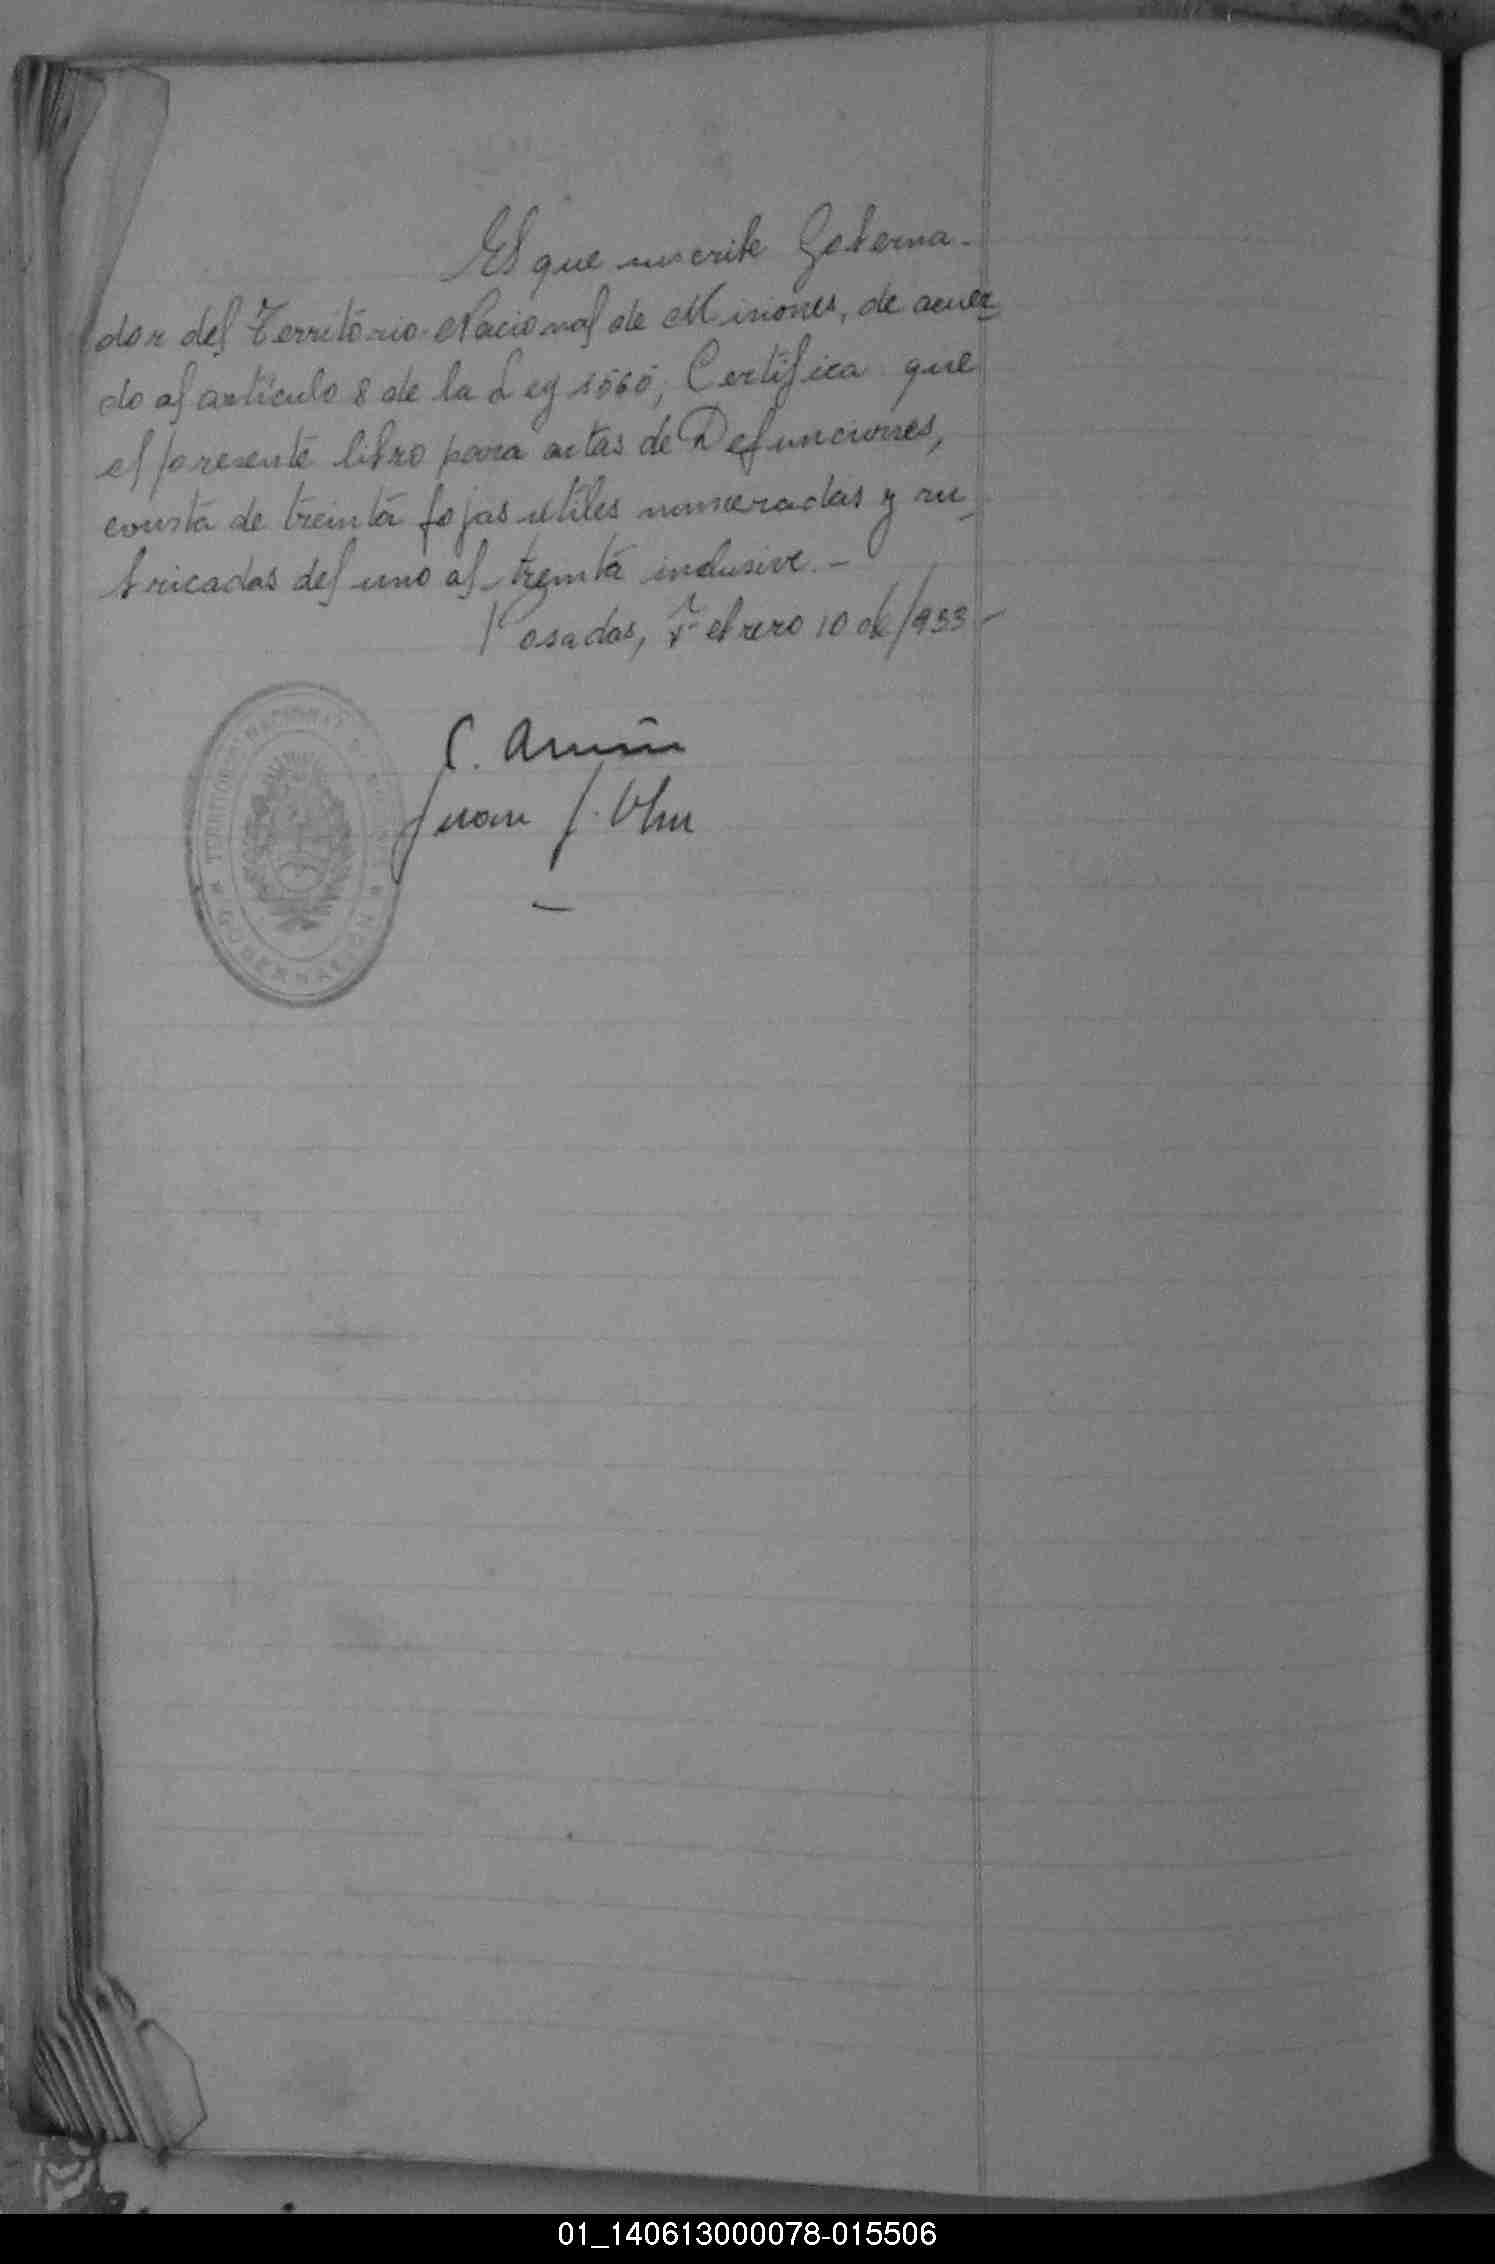 El que suscribe Goberna-
dor del Território Nacional de Misiones, de acuer
do al artículo 8 de la Ley 1565, Certifica que
el presente libro para actas de Defunciones,
consta de treinta fojas utiles numeradas y ru-
bricadas del uno al treinta inclusive.-
Posadas, Febrero 10 de/933-
C.
Juan J.
TERRITORIO NACIONAL
GOBERNACION
01_140613000078-015506